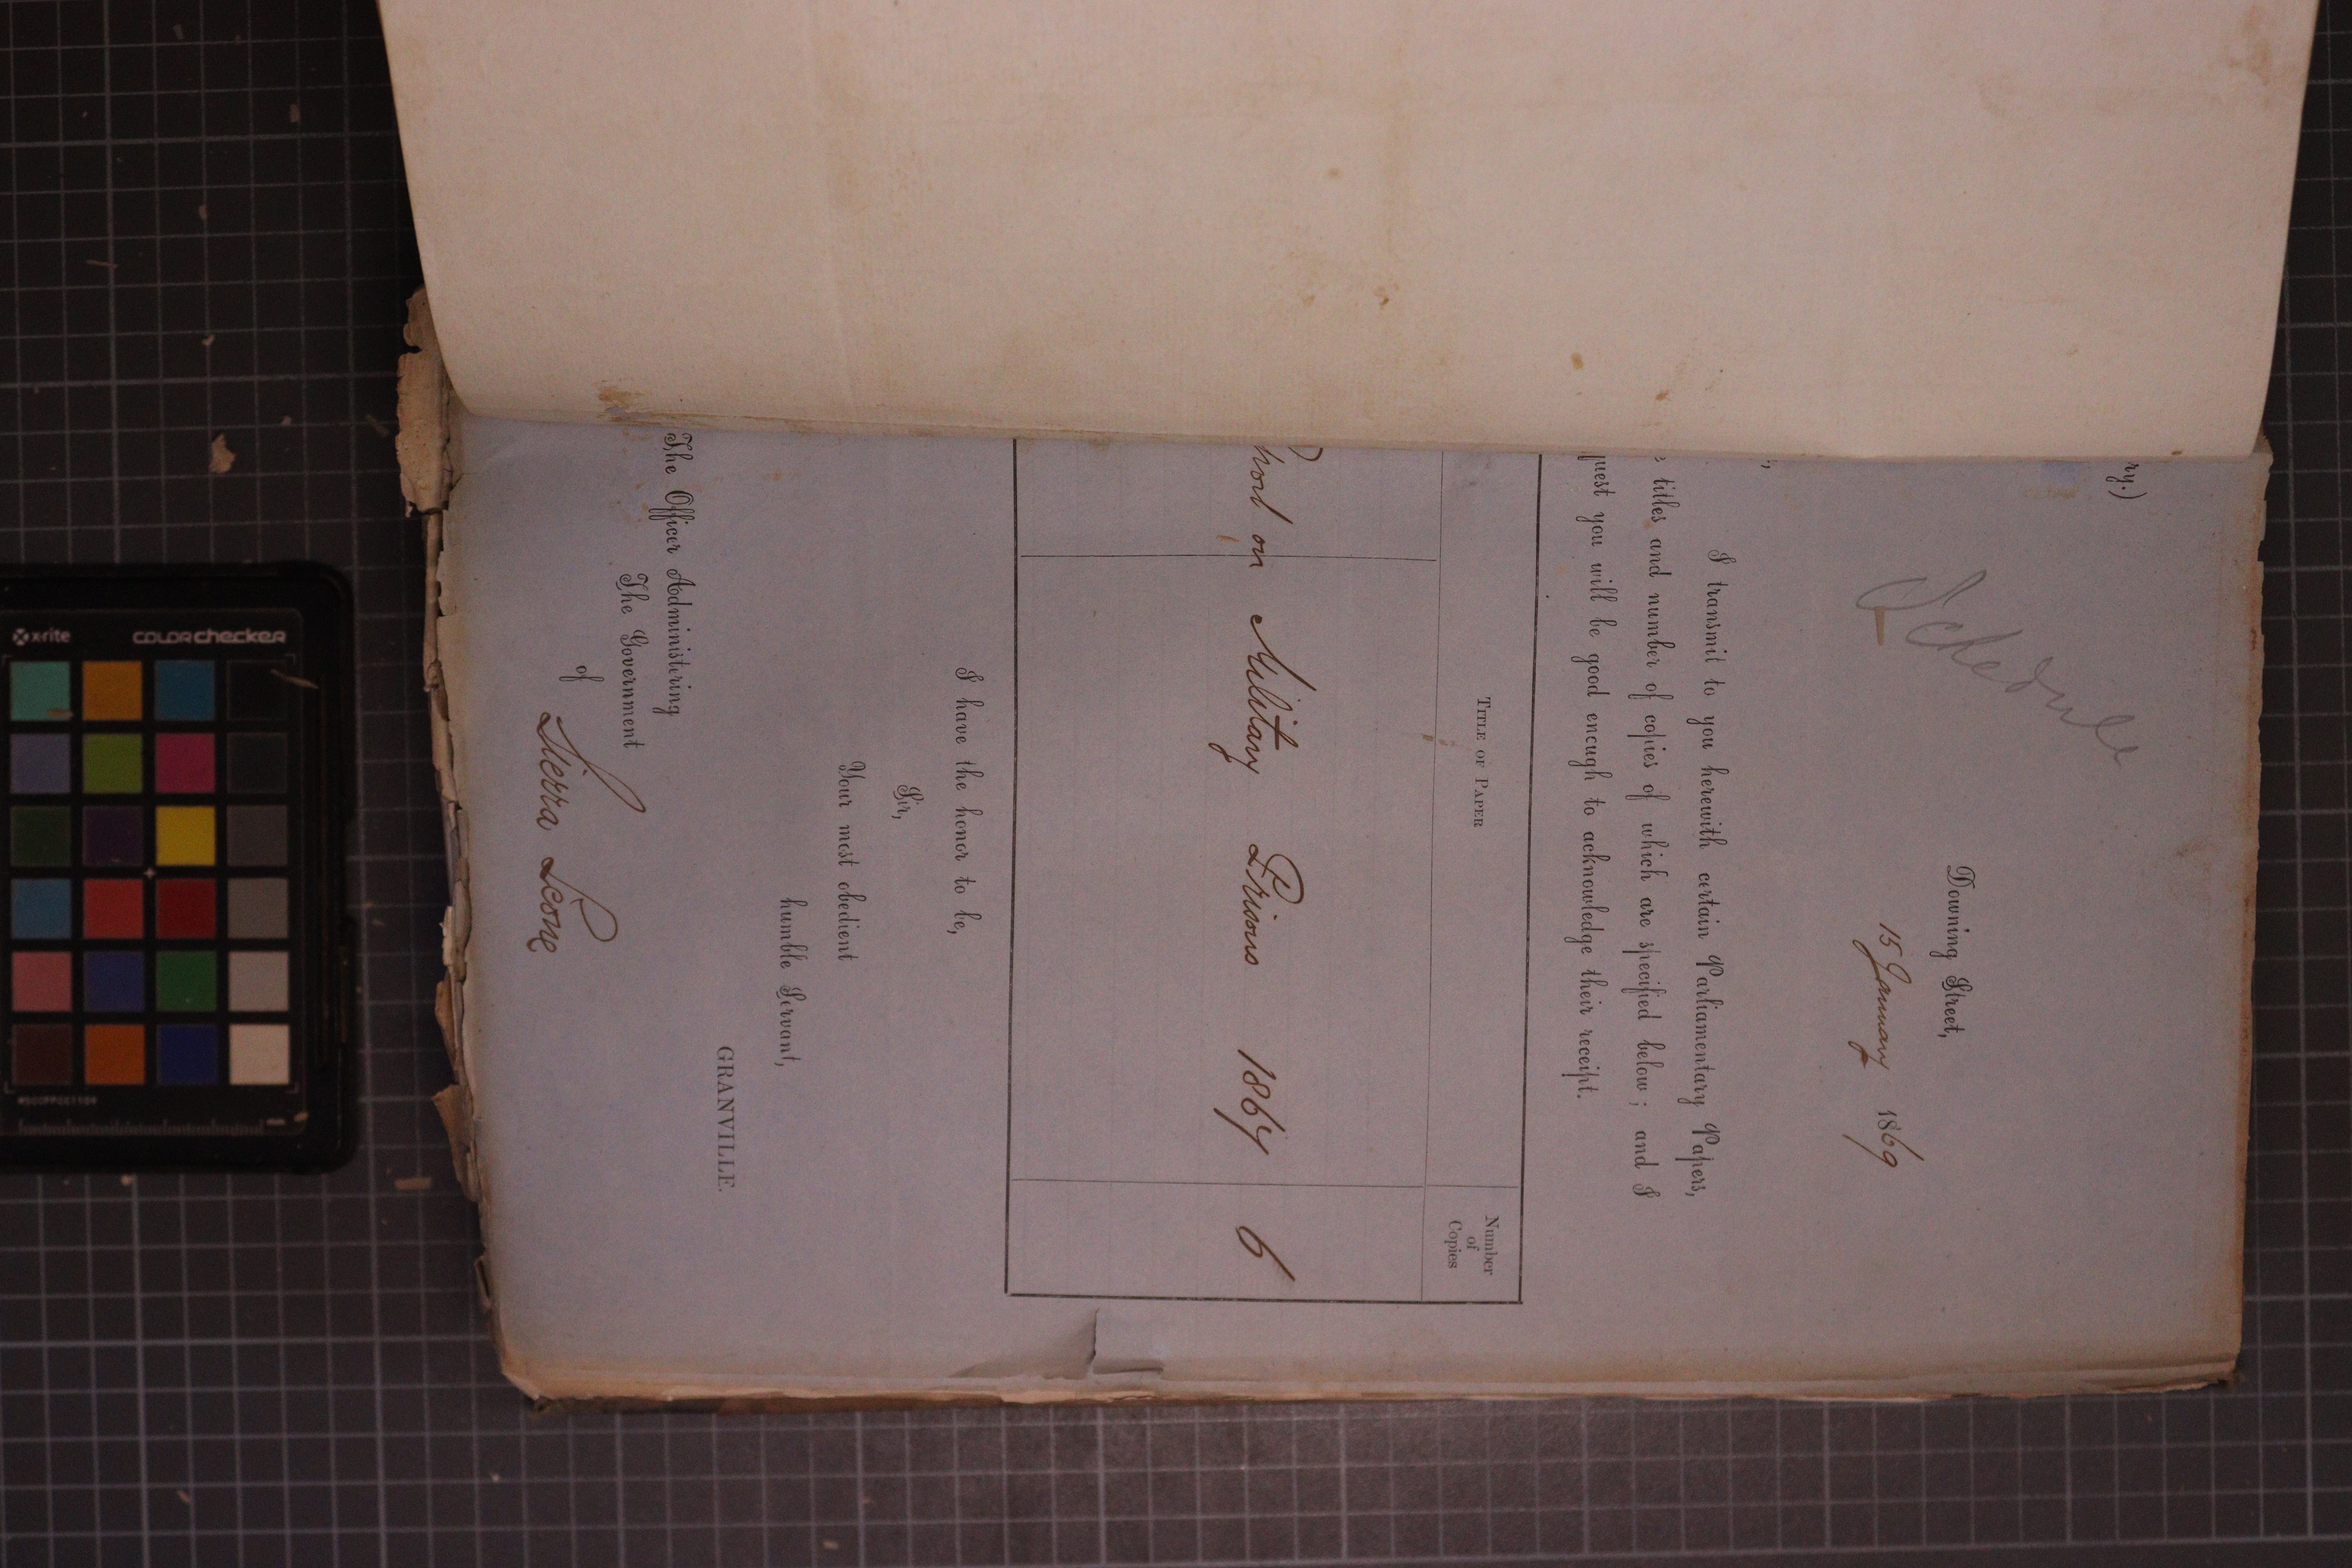 ry.)
Schedule
Downing Street,
15 January 1869
I transmit to you herewith certain Parliamentary Papers,
titles and number of copies of which are specified below; and I
quest you will be good enough to acknowledge their receipt.
TITLE OF PAPER
Number
of
Copies
on Military Prisons 1867 6
I have the honor to be,
Sir,
Your most obedient
humble Servant,
GRANVILLE.
The Officer Administering
The Government
of
Sierra Leone
x-rite
colorchecker
mm